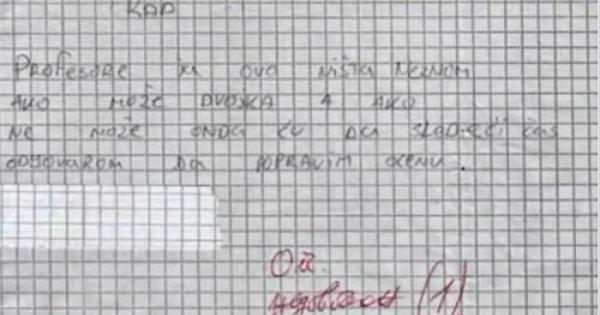 PROFESORE JA OVO NIŠTA NEZNAM
AKO MOŽE DVOJKA A AKO
NE MOŽE ONDA ĆU DA SLEDEĆI ČAS
ODGOVARAM DA POPRAVIM OCENU.
(1)